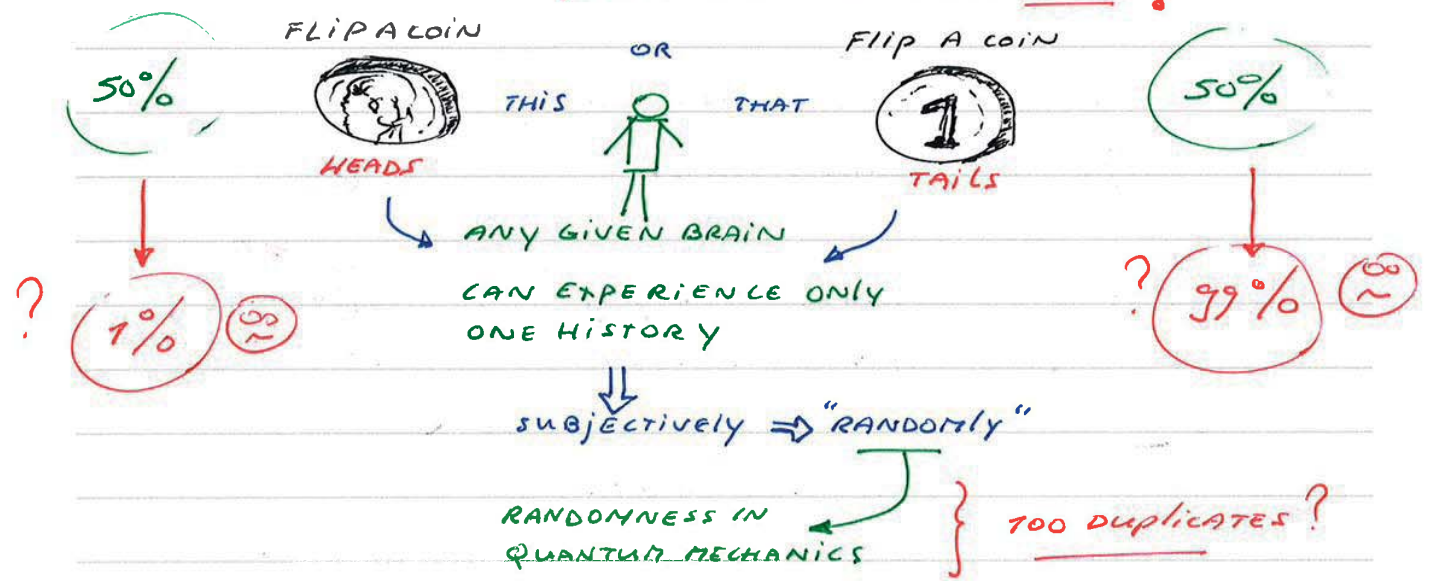 FLIP A COIN
OR
FLIP A COIN
50%
THIS
THAT
1
50%
HEADS
TAILS
ANY GIVEN BRAIN
? 1%
CAN EXPERIENCE ONLY
? 99%
ONE HISTORY
SUBJECTIVELY ⇒ "RANDOMLY"
RANDOMNESS IN
QUANTUM MECHANICS
100 DUPLICATES?